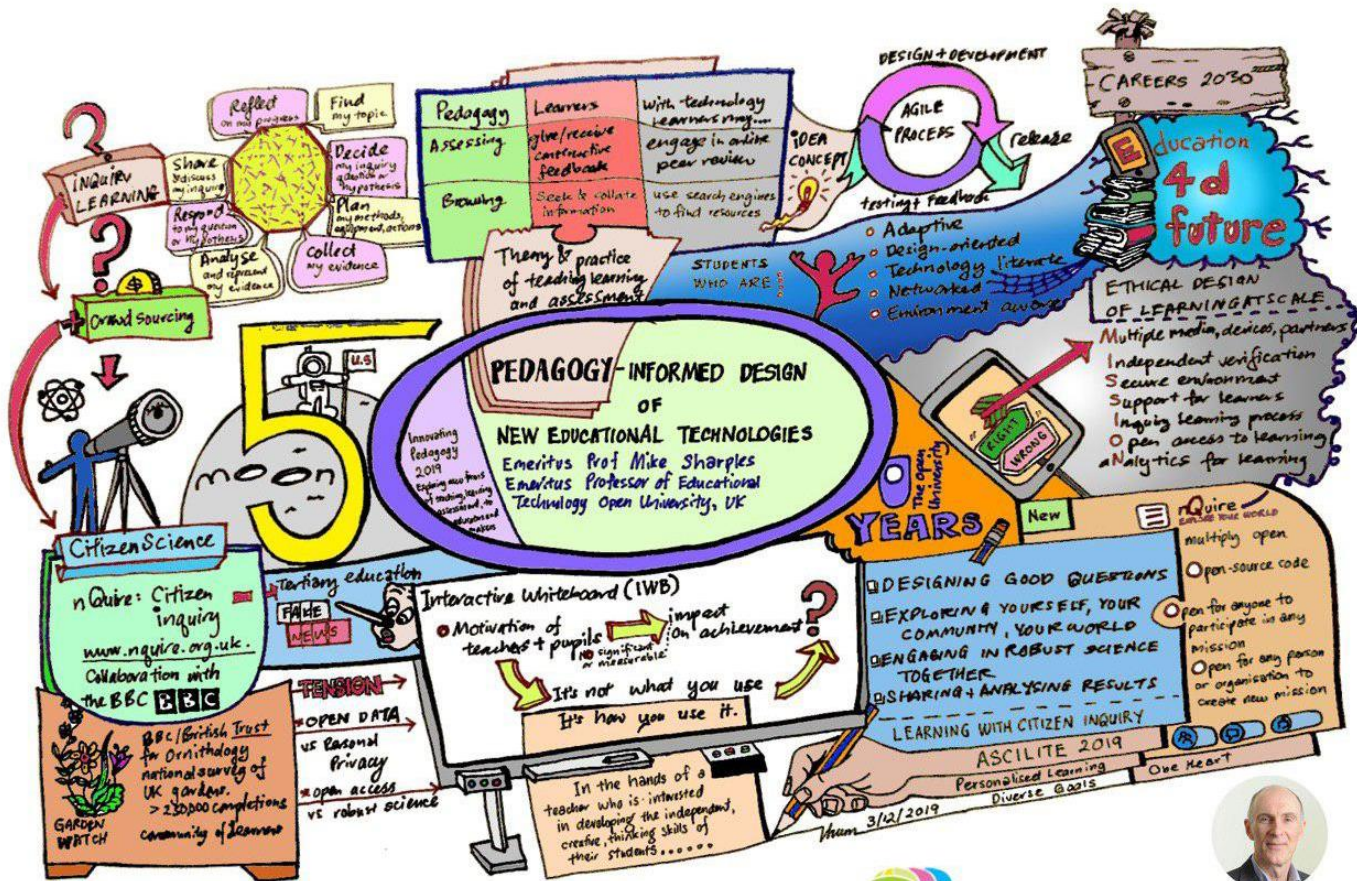 Reflect
on my progress
Find
my topic
Decide
my inquiry
question or
hypothesis
Plan
my methods,
equipment, actions
Collect
my evidence
Analyse
and represent
my evidence
Respond
to my question
or hypothesis
Share
& discuss
my inquiry
INQUIRY
LEARNING
Crowd sourcing
Pedagogy
Learners
With technology
Learners may...
Assessing
give/receive
constructive
feedback
engage in online
peer review
Browsing
Seek & collate
information
use search engines
to find resources
Theory & practice
of teaching learning
and assessment
IDEA
CONCEPT
DESIGN + DEVELOPMENT
AGILE
PROCESS
release
testing + Feedback
CAREERS 2030
Education
4d
future
STUDENTS
WHO ARE
Adaptive
Design-oriented
Technology literate
Networked
Environment aware
ETHICAL DESIGN
OF LEARNING AT SCALE
Multiple media, devices, partners
Independent verification
Secure environment
Support for learners
Inquiry learning process
Open access to learning
aNalytics for learning
RIGHT
WRONG
5
U.S
moon
PEDAGOGY-INFORMED DESIGN
OF
NEW EDUCATIONAL TECHNOLOGIES
Emeritus Prof Mike Sharples
Emeritus Professor of Educational
Technology Open University, UK
Innovating
Pedagogy
2019
of teaching, learning
The Open
University
YEARS
Citizen Science
nQuire: Citizen
inquiry
www.nquire.org.uk.
Collaboration with
the BBC BBC
BBC/British Trust
for Ornithology
national survey of
UK gardens.
> 230,000 completions
community of learners
GARDEN
WATCH
Tertiary education
FAKE
NEWS
TENSION
OPEN DATA
vs Personal
Privacy
open access
vs robust science
Interactive Whiteboard (IWB)
Motivation of
teachers + pupils
NO significant
or measurable
impact
on achievement
?
It's not what you use
It's how you use it.
In the hands of a
teacher who is interested
in developing the independent,
creative, thinking skills of
their students......
New
nQuire
EXPLORE YOUR WORLD
multiply open
Open-source code
Open for anyone to
participate in any
mission
Open for any person
or organisation to
create new mission
DESIGNING GOOD QUESTIONS
EXPLORING YOURSELF, YOUR
COMMUNITY, YOUR WORLD
ENGAGING IN ROBUST SCIENCE
TOGETHER
SHARING + ANALYSING RESULTS
LEARNING WITH CITIZEN INQUIRY
ASCILITE 2019
Personalised Learning
Diverse Goals
One Heart
3/12/2019